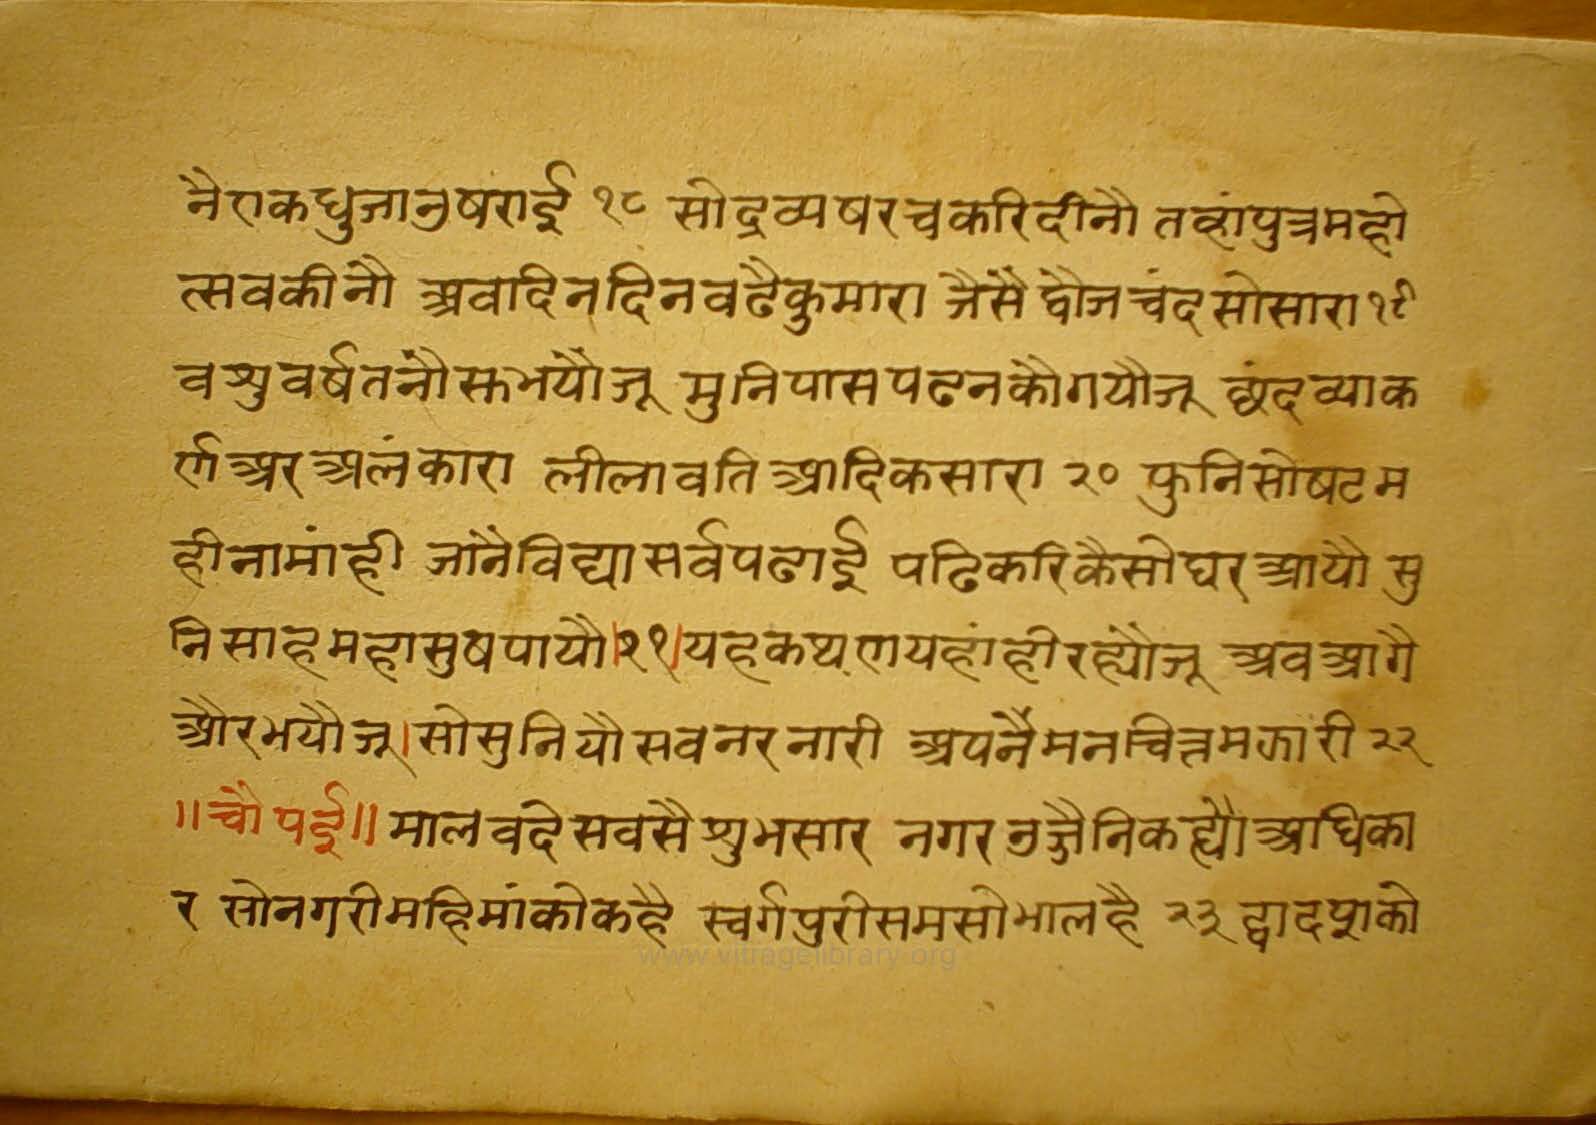 नैएकघुजानुषराई १८ सोद्रव्यषरचकरिदीनौ तव्हांपुत्रमहो
त्सवकीनौ अवादिनदिनवढैकुमारा जैसैं द्वौजचंदसोसारा १९
वशुवर्षतनौस्तभयौंजू मुनिपासपढनकौगयौजू छंदव्याक
र्णअरअलंकारा लीलावतिआदिकसारा २० फुनिसोषटम
हीनामांही जांनैविद्यासर्वपढाई पढिकरिकैसोघरआयौ सु
निसाहमहासुषपायौ।२१।यहकथ्यणयहांहीरह्यौंजू अवआगै
औरभयौजू।सोसुनियौसवनरनारी अपनैंमनचित्तमझारी २२
॥चौपई॥मालवदेसवसैशुभसार नगरउज्जैनिकह्यौंअधिका
र सोनगरीमहिमांकोकहै स्वर्गपुरीसमसोभालहै २३ द्वादशको
www.vitragelibrary.org